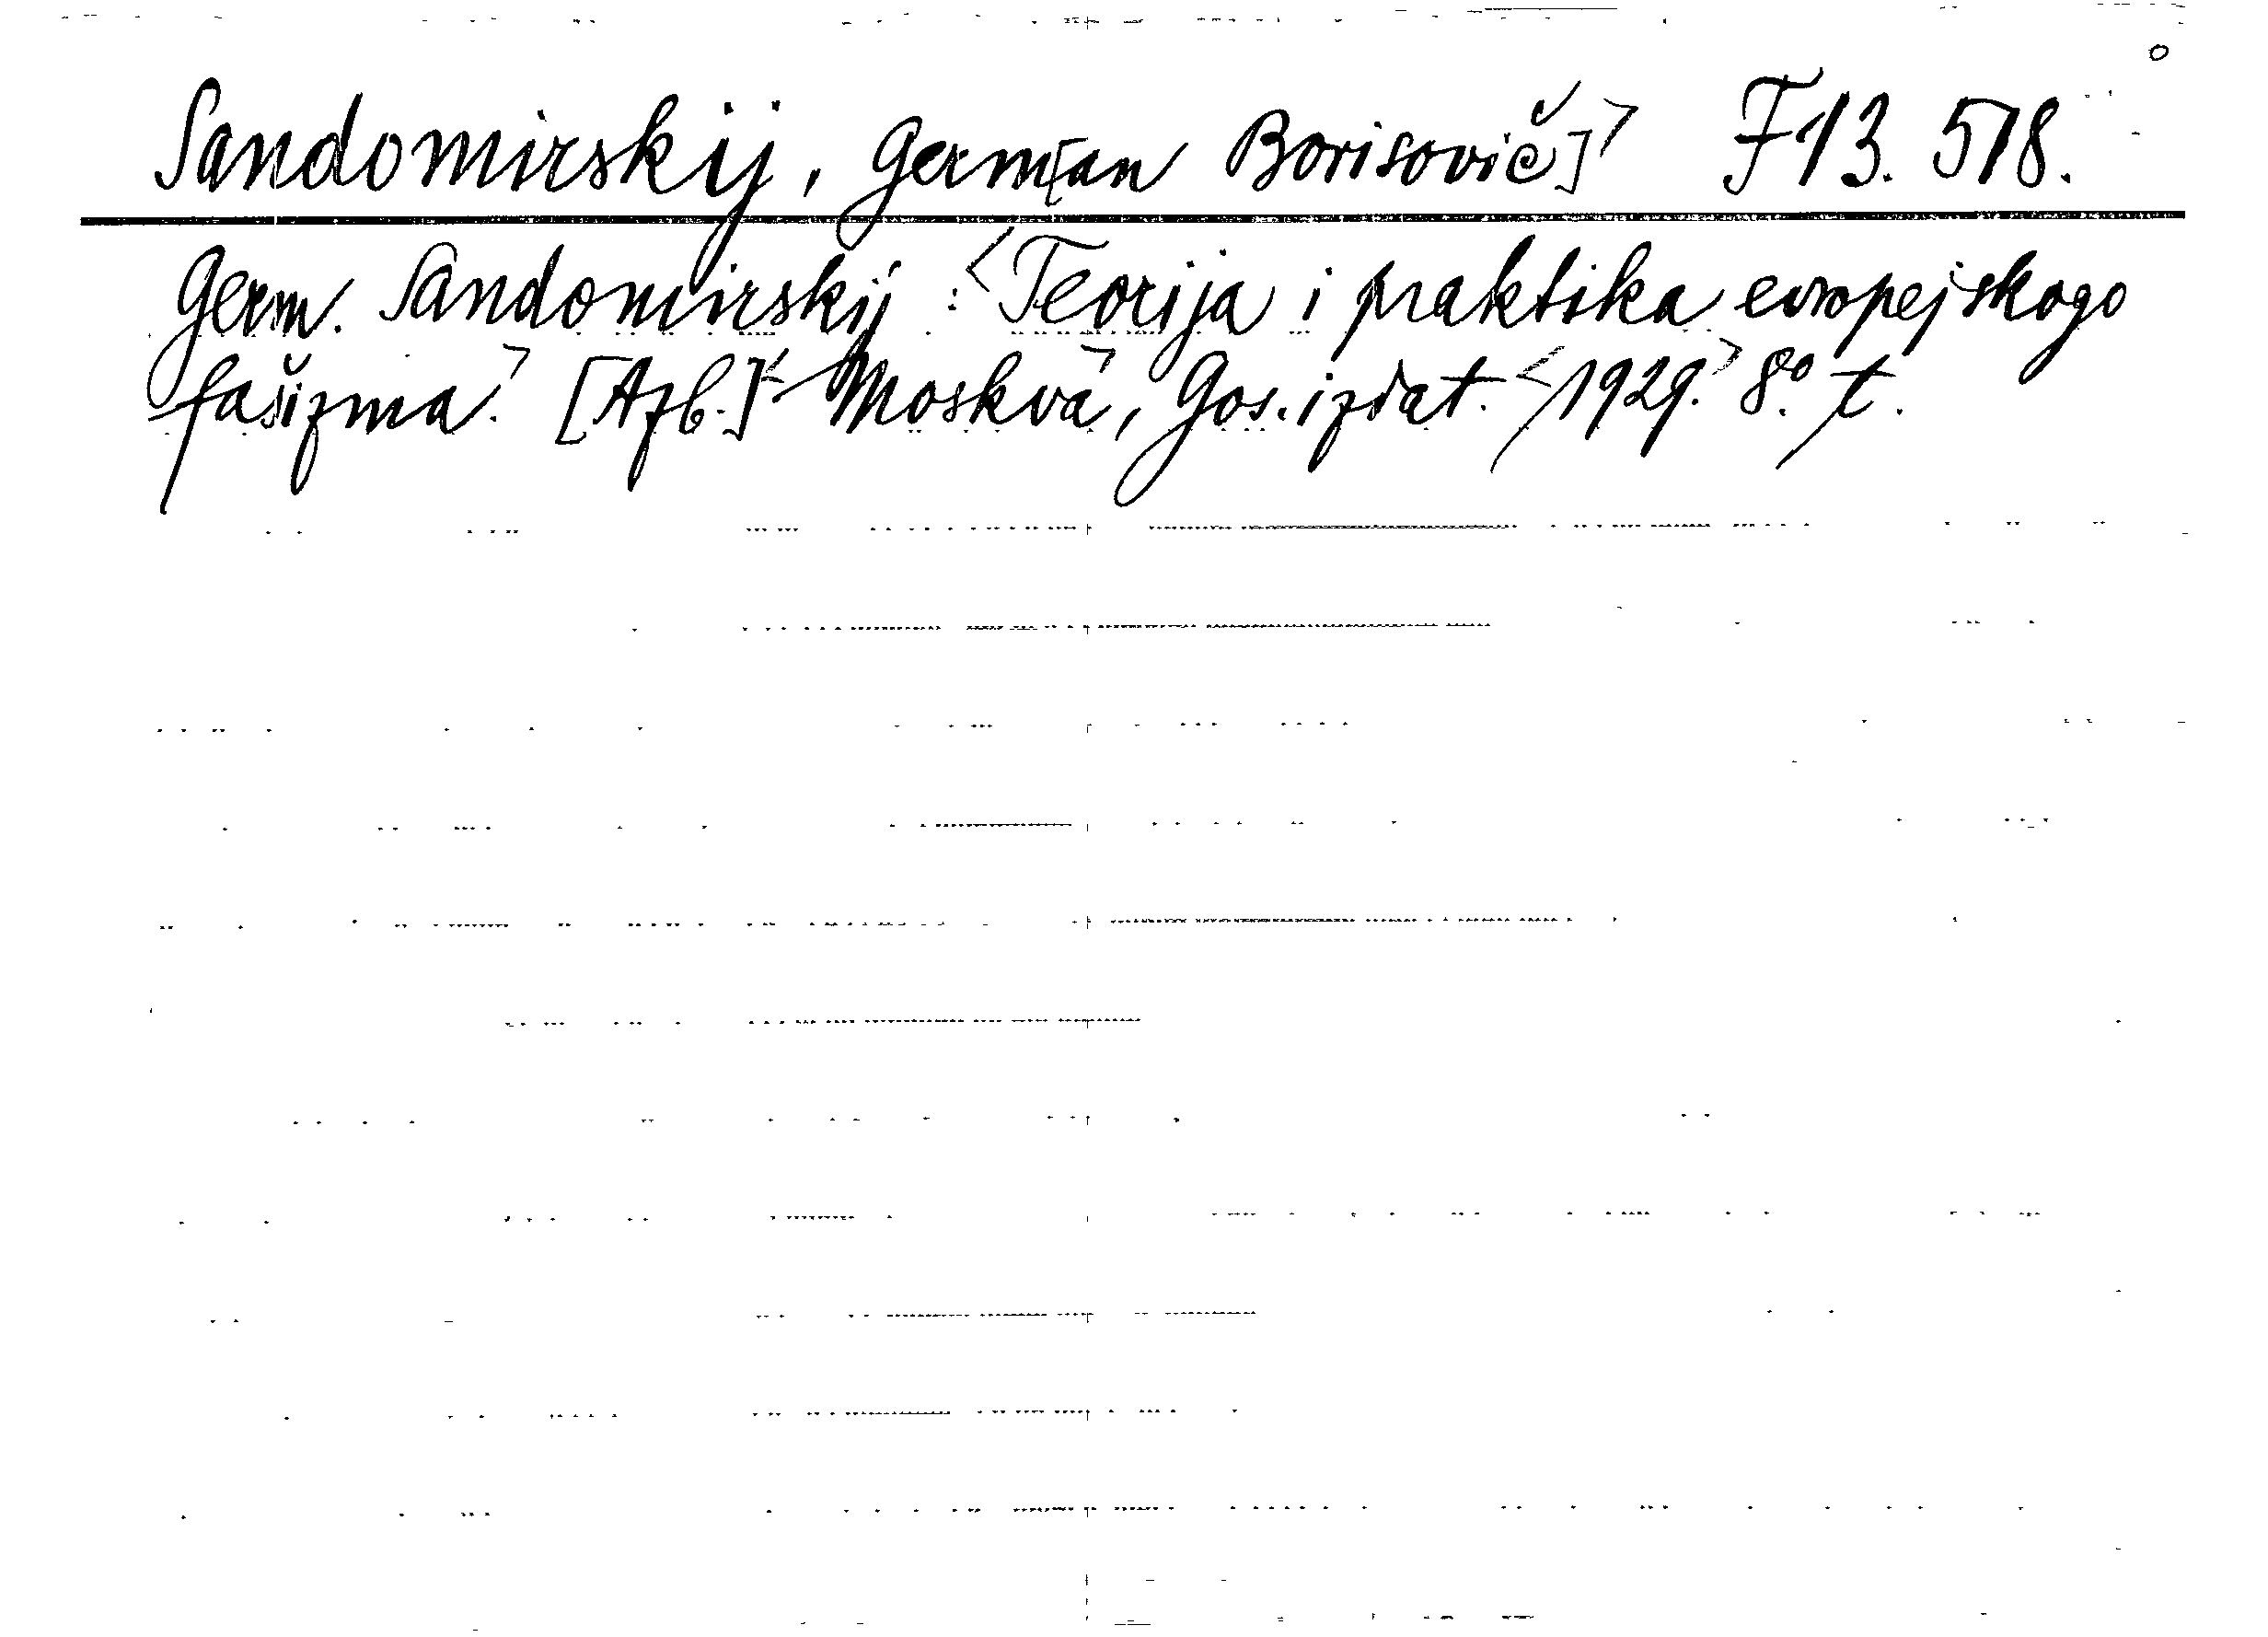 Sandomirskij, Germ[an Borisovič]> F 13. 518.
Germ. Sandomirskij : <Teorija i praktika evropejskogo
fašizma.> [Azb.] <Moskva>, Gos. izdat. <1929.> 8º. t.